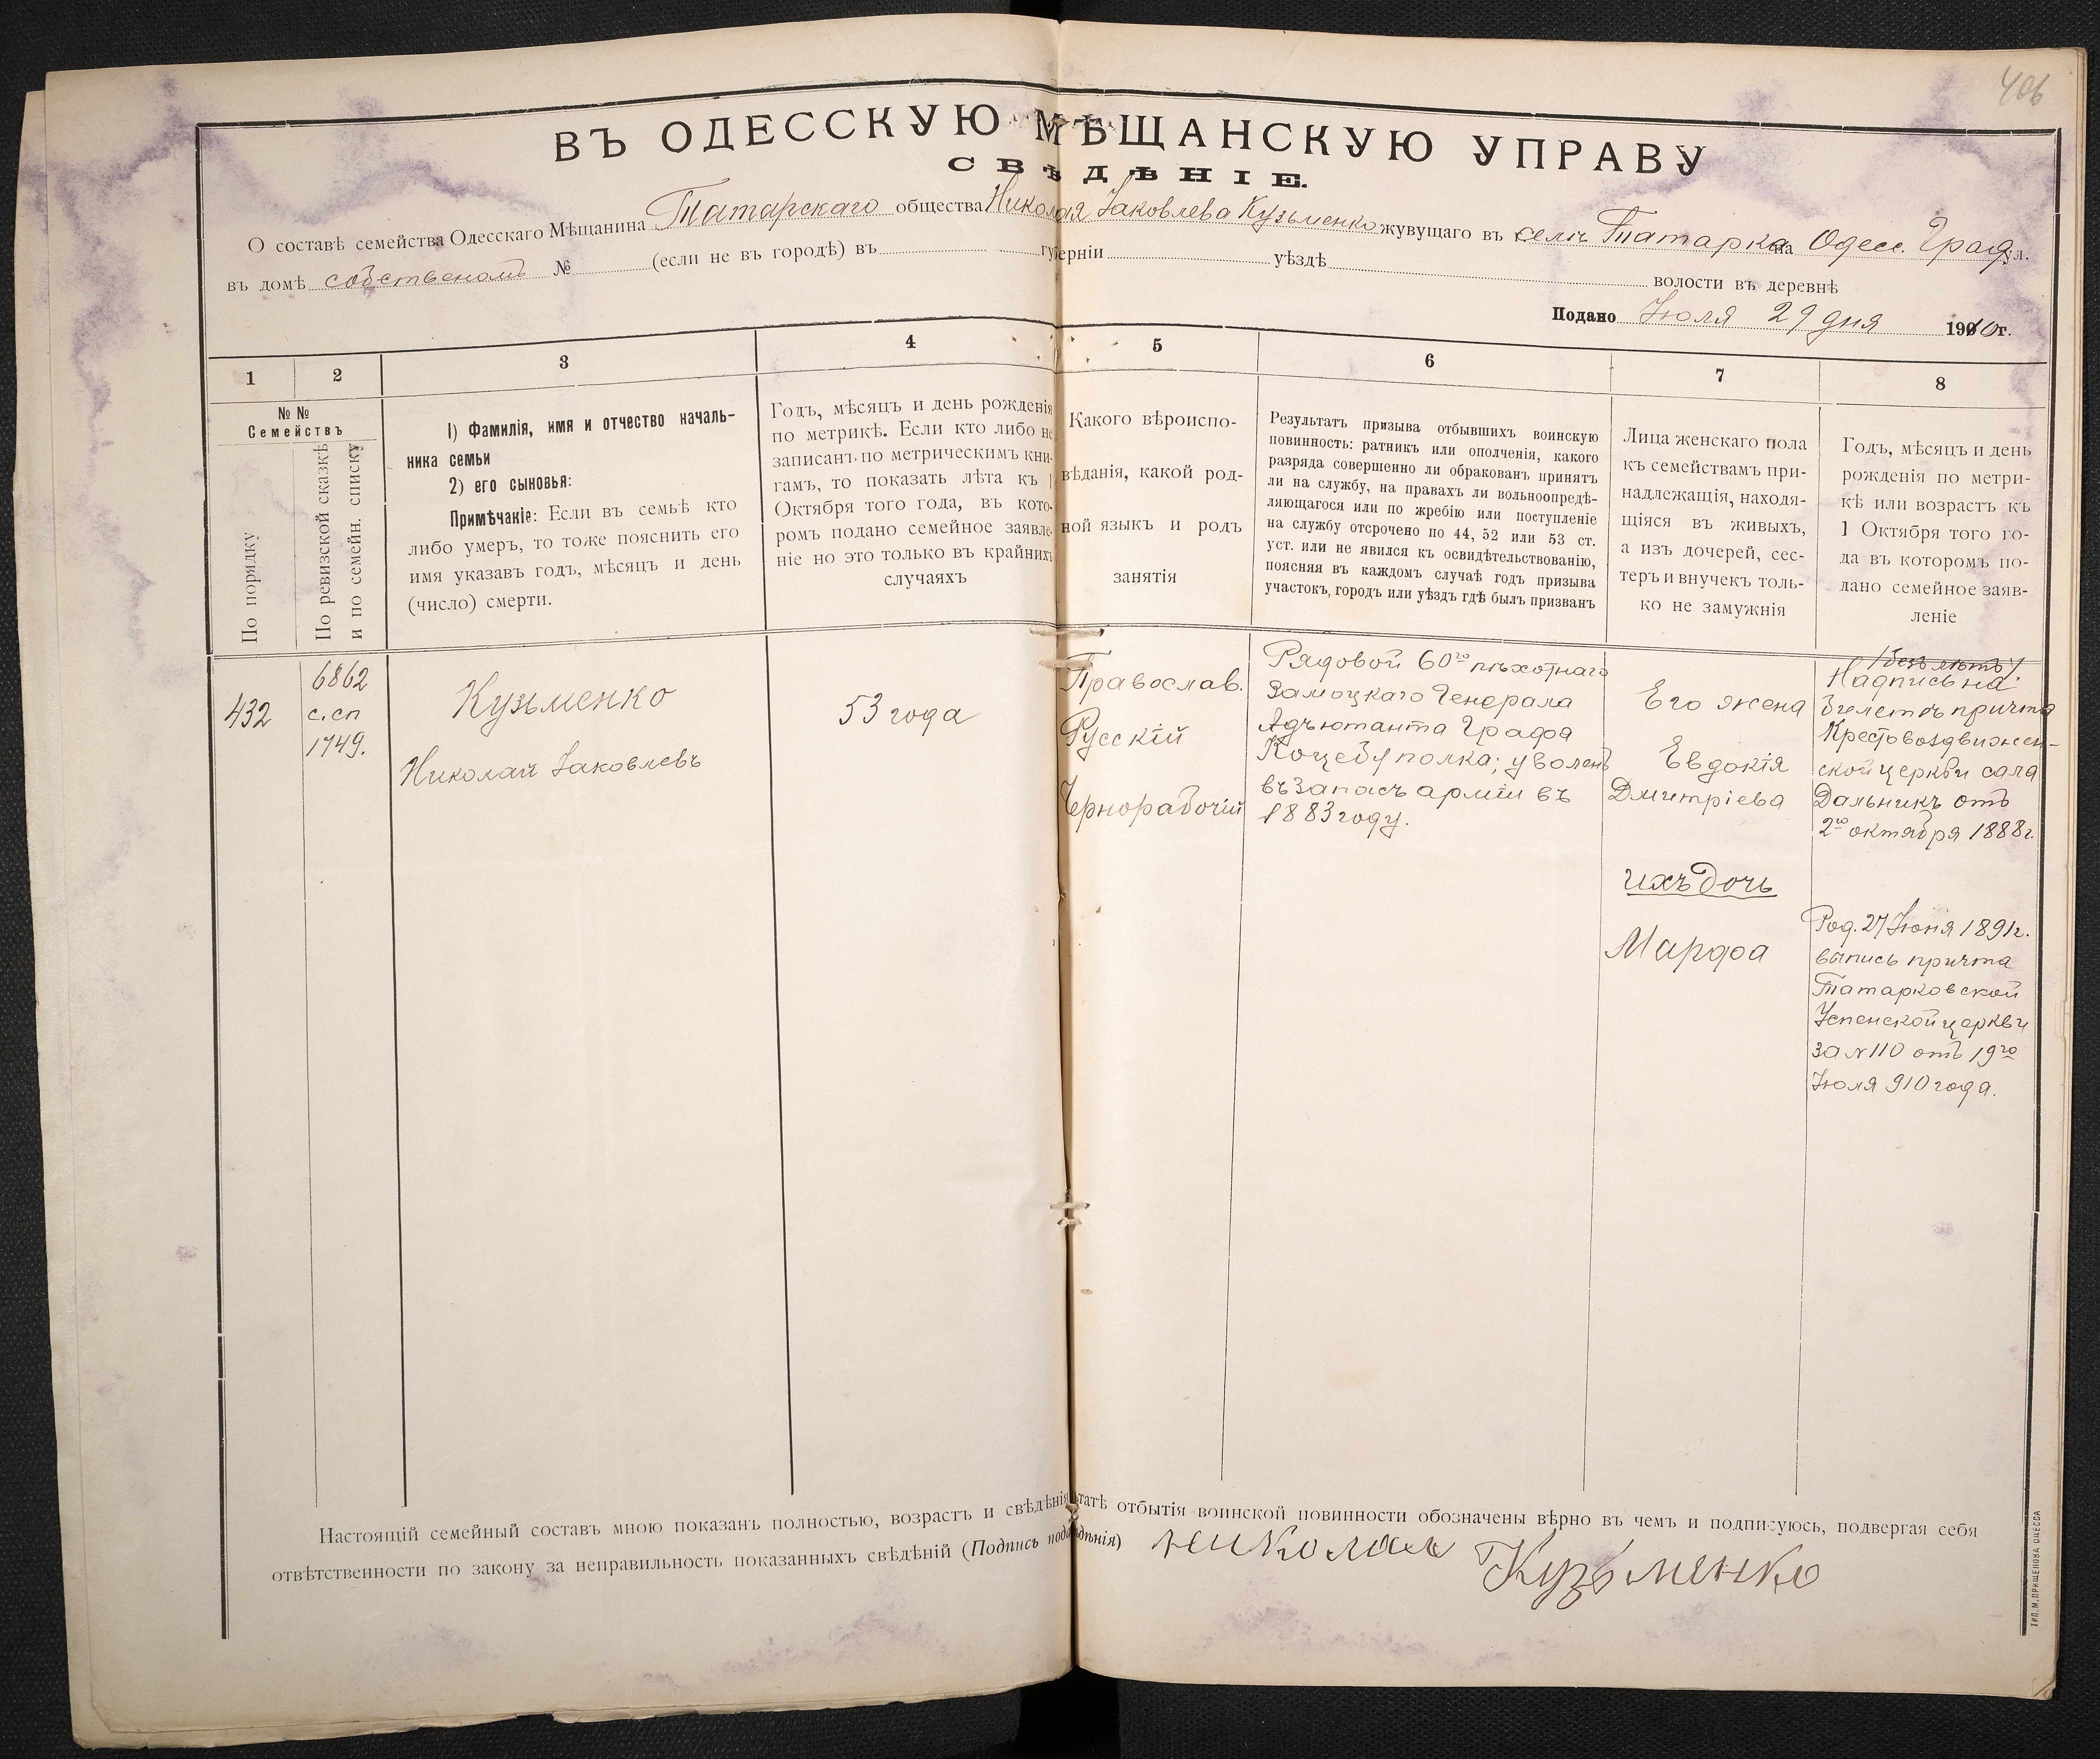 406
ВЪ ОДЕССКУЮ МѢЩАНСКУЮ УПРАВУ
СВѢДѢНІЕ.
О составѣ семейства Одесскаго Мѣщанина Татарскаго общества Николая Іаковлева Кузьменко жувущаго въ селѣ Татарка на Одесс. Град ул.
въ домѣ собственомъ № (если не въ городѣ) въ губерніи уѣздѣ волости въ деревнѣ
Подано Іюля 29 дня 1910г.
1 2 3 4 5 6 7 8
№ №
Семействъ
По порядку
По ревизской сказкѣ
и по семейн. списку
1) Фамилія, имя и отчество началь-
ника семьи
2) его сыновья:
Примѣчаніе: Если въ семьѣ кто
либо умеръ, то тоже пояснить его
имя указавъ годъ, мѣсяцъ и день
(число) смерти.
Годъ, мѣсяцъ и день рожденія
по метрикѣ. Если кто либо не
записанъ по метрическимъ кни-
гамъ, то показать лѣта къ 1
Октября того года, въ кото-
ромъ подано семейное заявле-
ніе но это только въ крайнихъ
случаяхъ
Какого вѣроиспо-
вѣданія, какой род-
ной языкъ и родъ
занятія
Результатъ призыва отбывшихъ воинскую
повинность: ратникъ или ополченія, какого
разряда совершенно ли обракованъ принятъ
ли на службу, на правахъ ли вольноопредѣ-
ляющагося или по жребію или поступленіе
на службу отсрочено по 44, 52 или 53 ст.
уст. или не явился къ освидѣтельствованію,
поясняя въ каждомъ случаѣ годъ призыва
участокъ, городъ или уѣздъ гдѣ былъ призванъ
Лица женскаго пола
къ семействамъ при-
надлежащія, находя-
щіяся въ живыхъ,
а изъ дочерей, сес-
теръ и внучекъ толь-
ко не замужнія
Годъ, мѣсяцъ и день
рожденія по метри-
кѣ или возрастъ къ
1 Октября того го-
да въ которомъ по-
дано семейное заяв-
леніе
432
6862
с.сп
1749.
Кузьменко
Николай Іаковлевъ
53 года
Православ.
Русскій
Чернорабочій
Рядовой 60го пѣхотнаго
Замоцкаго Генерала
Адъютанта Графа
Коцебу полка; уволенъ
въ запасъ арміи въ
1883 году.
Его жена
Евдокія
Дмитріева
ихъ дочь
Марфа
/безъ лѣтъ/
Надпись на
билетѣ причта
Крестовоздвижен-
ской церкви села
Дальникъ отъ
2го октября 1888г.
Род. 27 Іюня 1891г.
выпись причта
Татарковской
Успенской церкви
за №110 отъ 19го
Іюля 910 года.
Настоящій семейный составъ мною показанъ полностью, возрастъ и свѣдѣнія татѣ отбытія воинской повинности обозначены вѣрно въ чемъ и подписуюсь, подвергая себя
отвѣтственности по закону за неправильность показанныхъ свѣдѣній (Подпись пода дѣнія) Николай Кузьменко
ТИП. М. ПРИЩЕПОВА ОДЕССА